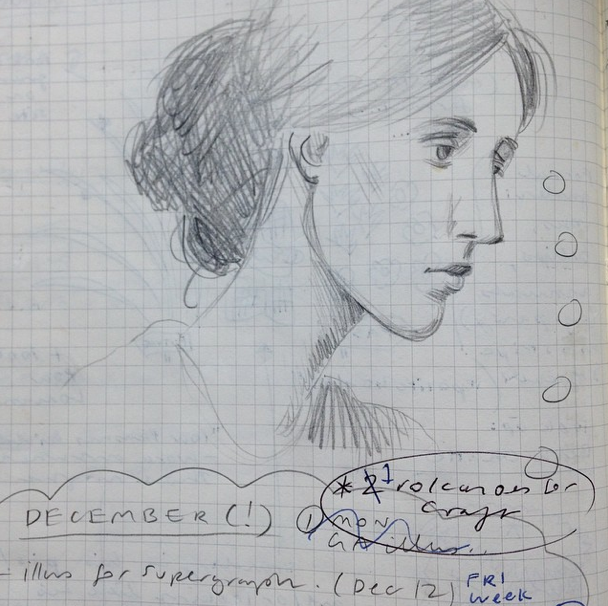 * 1 volcanoes for
DECEMBER (!) ① MON
illus.
- illus for supergraph. (Dec 12) FRI
week